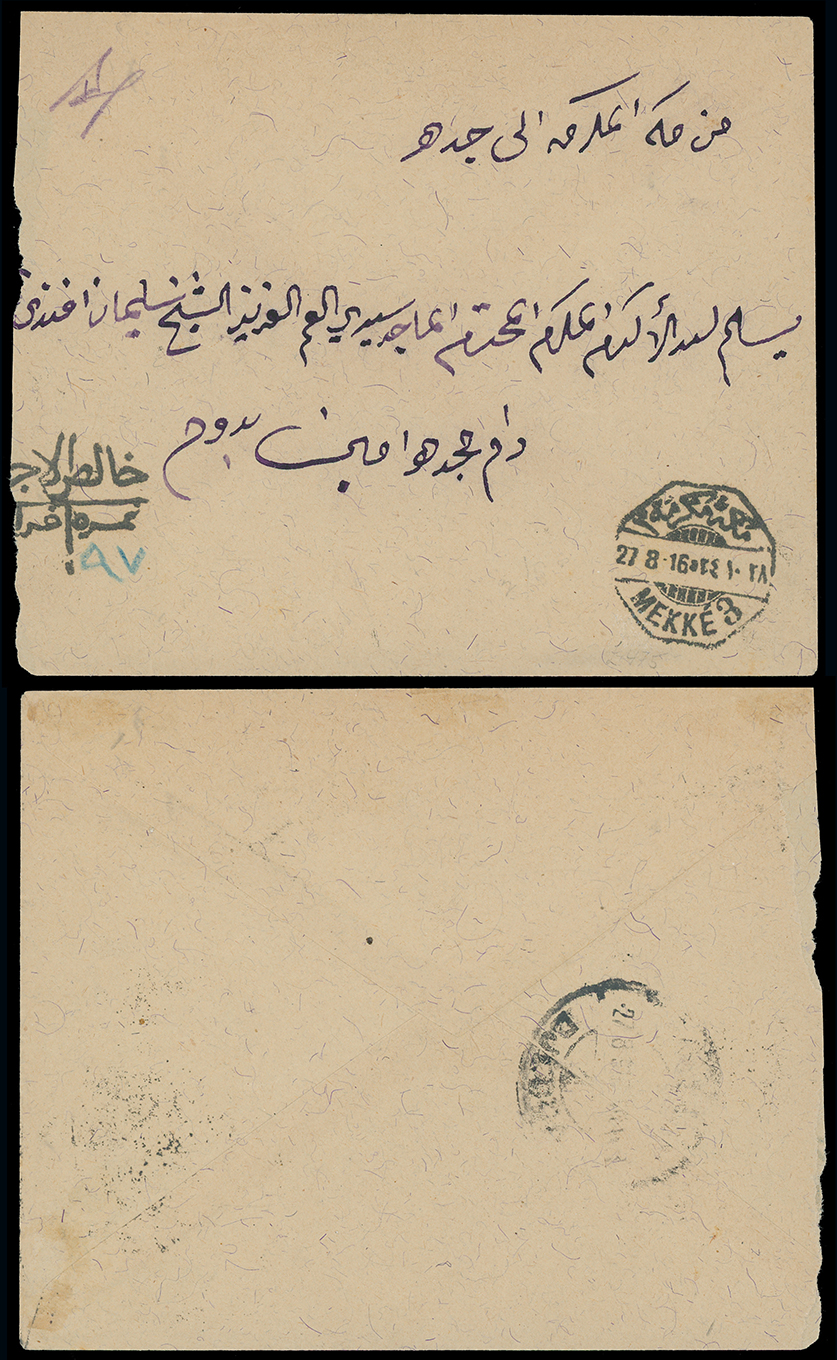 من مكه المكرمه الى جده
يسلم ليد الأكرم المكرم المحترم الماجد سيدي العم العزيز الشيخ سليمان افندي
دام مجده امين بدوح
خالص الاجر
نمره
٩٧
مكة مكرمه
27 8 -16 ٣٤ ١٠ ٢٨
MEKKÉ 3
27 8